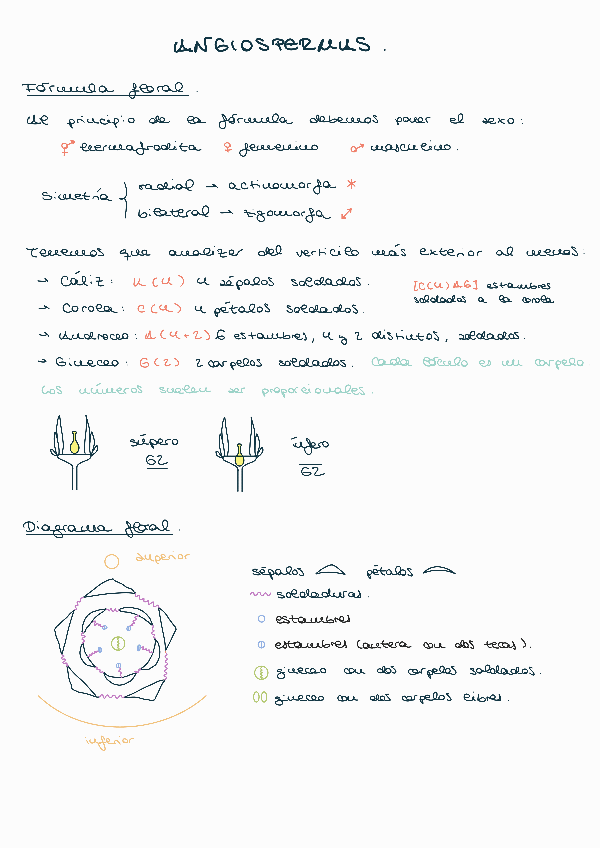 ANGIOSPERMAS.
Fórmula floral.
Al principio de la fórmula debemos poner el sexo:
⚥ hermafrodita ♀ femenino ♂ masculino.
Simetría { radial → actinomorfa *
bilateral → zigomorfa ↗
Tenemos que analizar del verticilo más exterior al menos.
→ Cáliz: K(4) 4 sépalos soldados.
[C(4)A6] estambres
soldados a la corola
→ Corola: C(4) 4 pétalos soldados.
→ Androceo: A(4+2) 6 estambres, 4 y 2 distintos, soldados.
→ Gineceo: G(2) 2 carpelos soldados. Cada lóculo es un carpelo
Los números suelen ser proporcionales.
súpero
G2
ínfero
G2
Diagrama floral.
superior
inferior
sépalos pétalos
soldaduras.
estambres
estambres (antera con dos tecas).
gineceo con dos carpelos soldados.
gineceo con dos carpelos libres.